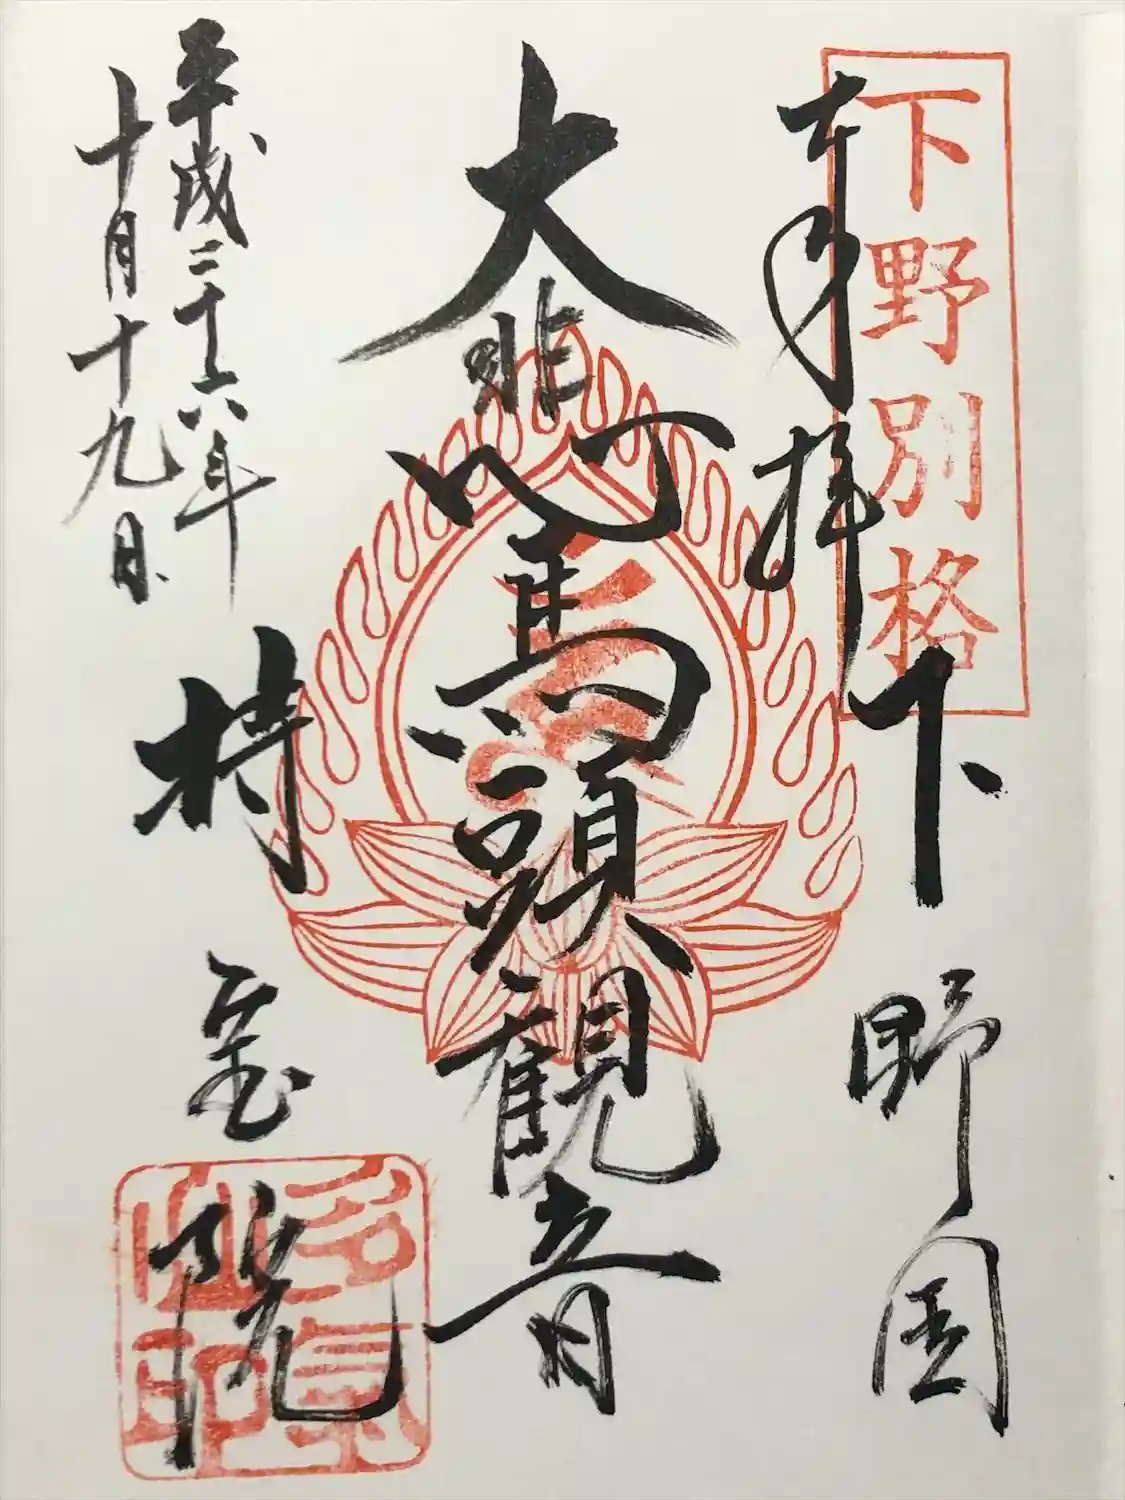 下野別格
奉拝
下野国
大悲
馬頭観音
平成二十六年
十月十九日
持宝院
多気山印